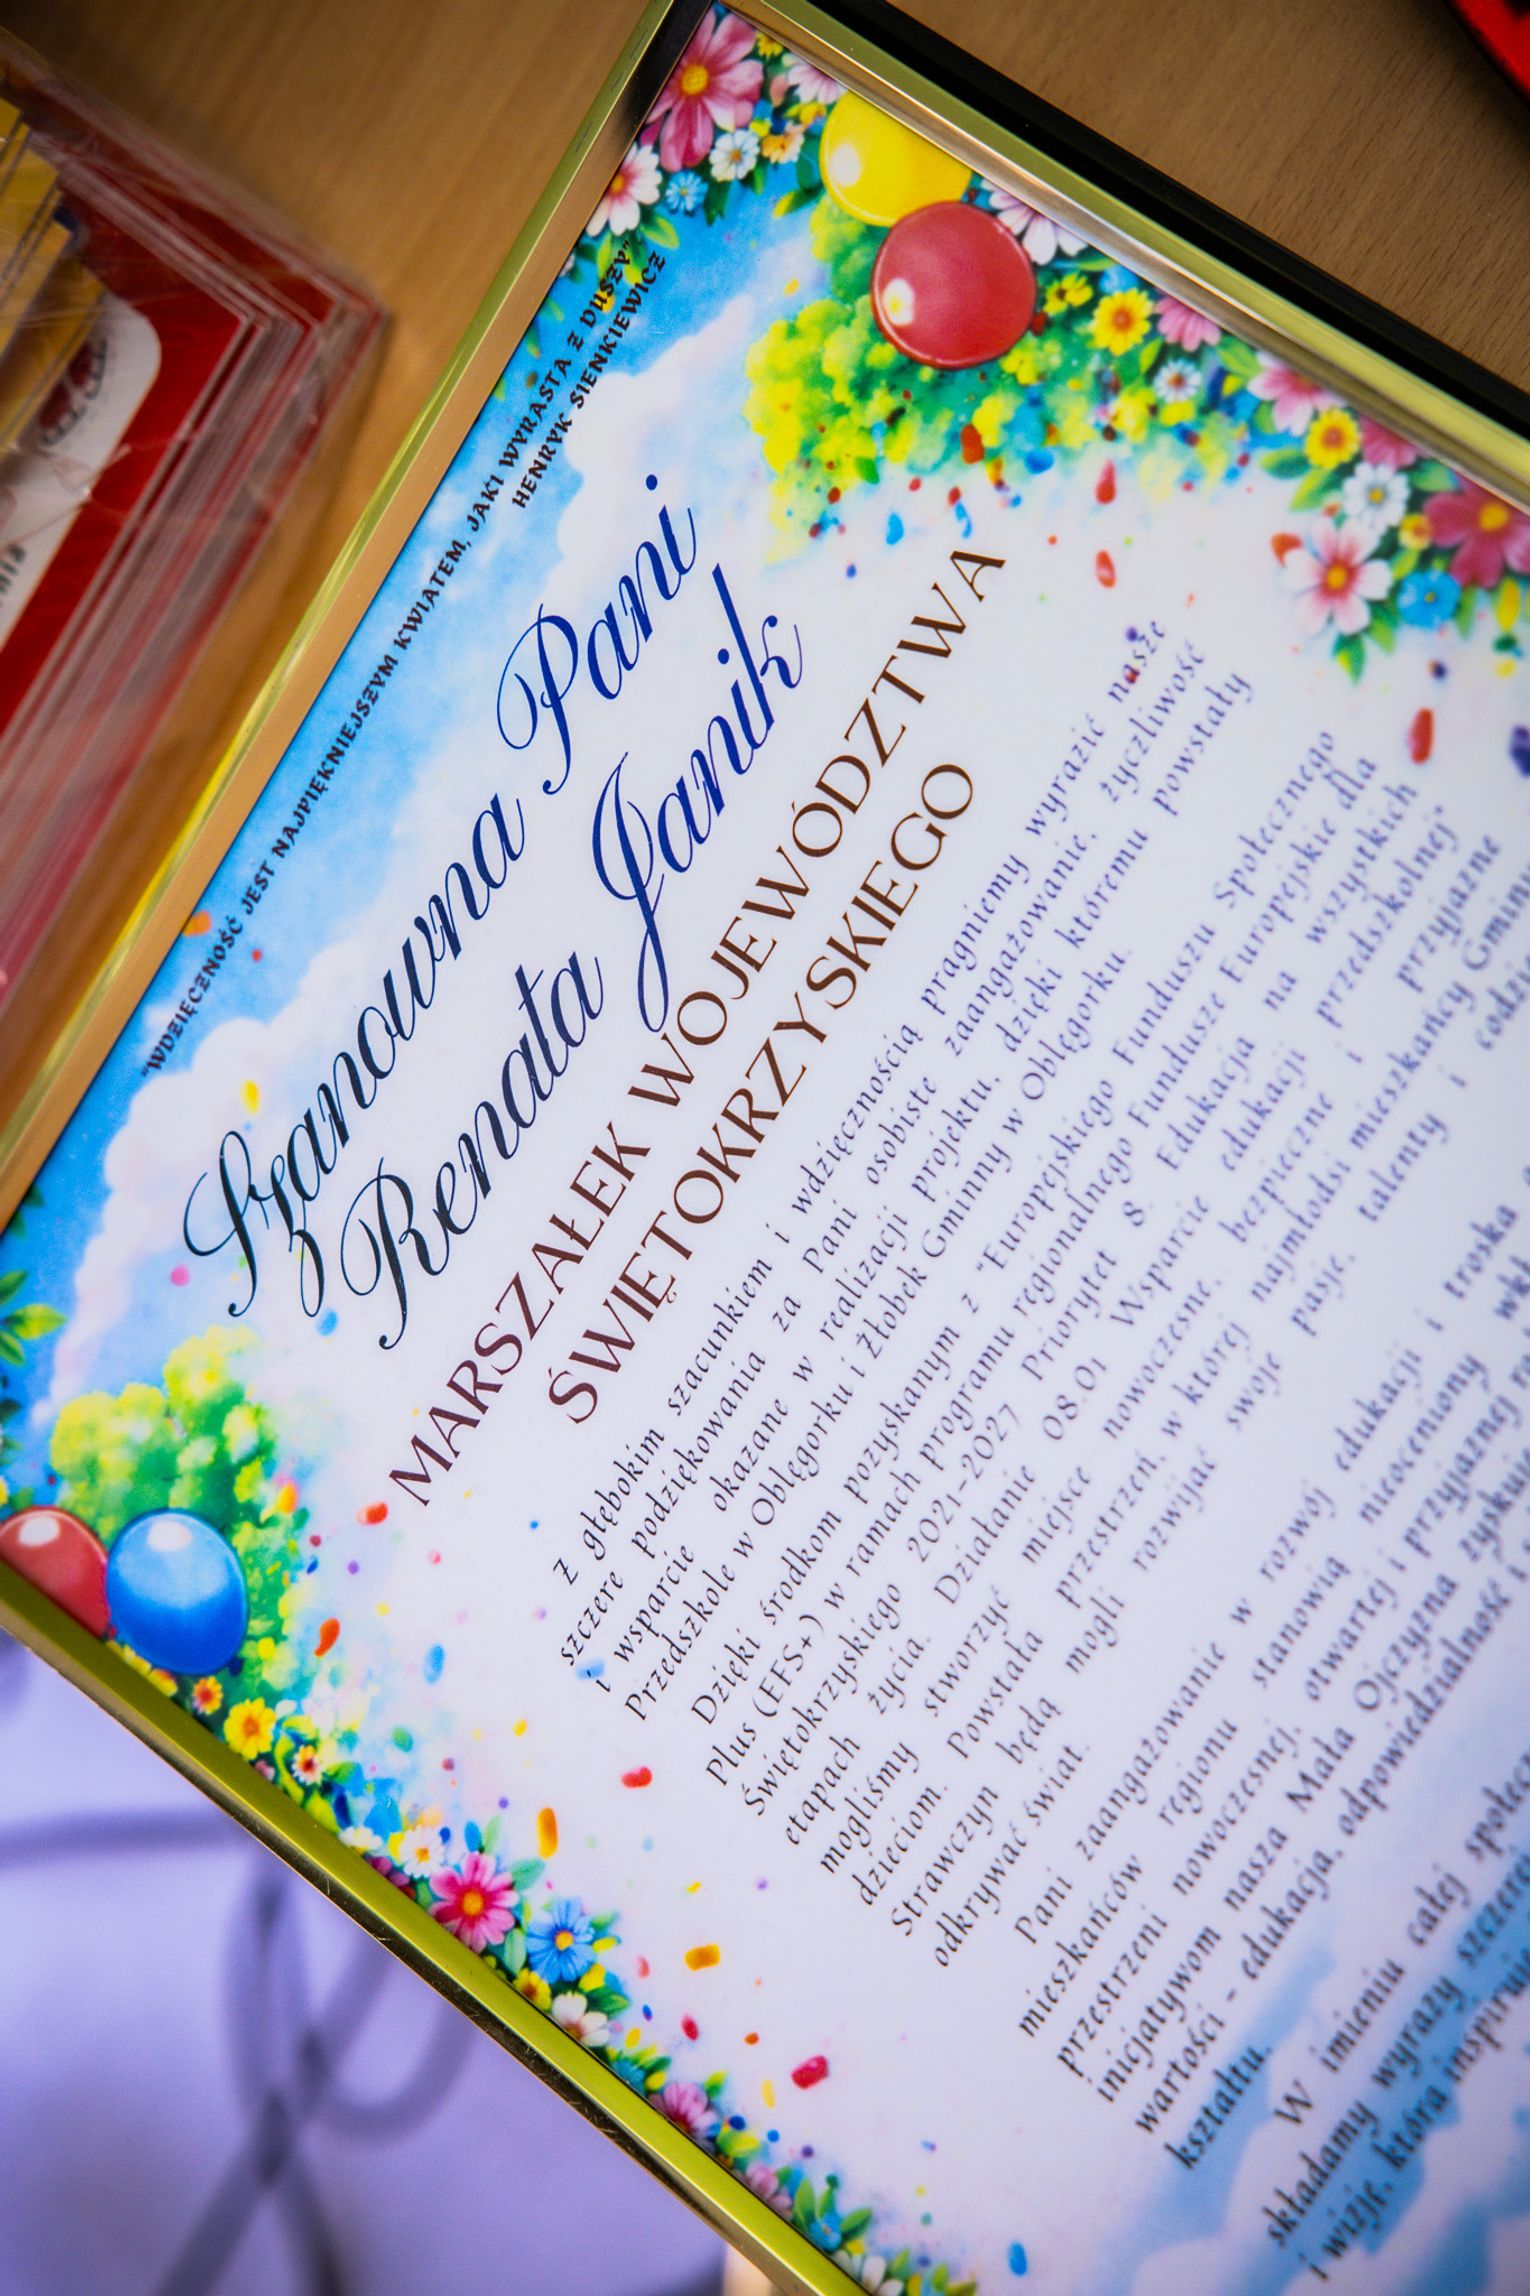 "WDZIĘCZNOŚĆ JEST NAJPIĘKNIEJSZYM KWIATEM, JAKI WYRASTA Z DUSZY"
HENRYK SIENKIEWICZ
Szanowna Pani
Renata Janik
MARSZAŁEK WOJEWÓDZTWA
ŚWIĘTOKRZYSKIEGO
z głębokim szacunkiem i wdzięcznością pragniemy wyrazić nasze
szczere podziękowania za Pani osobiste zaangażowanie, życzliwość
i wsparcie okazane w realizacji projektu, dzięki któremu powstały
Przedszkole w Oblęgorku i Żłobek Gminny w Oblęgorku.
Dzięki środkom pozyskanym z "Europejskiego Funduszu Społecznego
Plus (EFS+) w ramach programu regionalnego Fundusze Europejskie dla
Świętokrzyskiego 2021-2027 Priorytet 8. Edukacja na wszystkich
etapach życia. Działanie 08.01 Wsparcie edukacji przedszkolnej"
mogliśmy stworzyć miejsce nowoczesne, bezpieczne i przyjazne
dzieciom. Powstała przestrzeń, w której najmłodsi mieszkańcy Gminy
Strawczyn będą mogli rozwijać swoje pasje, talenty i
odkrywać świat.
Pani zaangażowanie w rozwój edukacji i troska
mieszkańców regionu stanowią nieoceniony
przestrzeni nowoczesnej, otwartej i przyjaznej
inicjatywom nasza Mała Ojczyzna zyskuje
wartości - edukacja, odpowiedzialność i
kształtu.
W imieniu całej
składamy wyrazy
i wizję, która